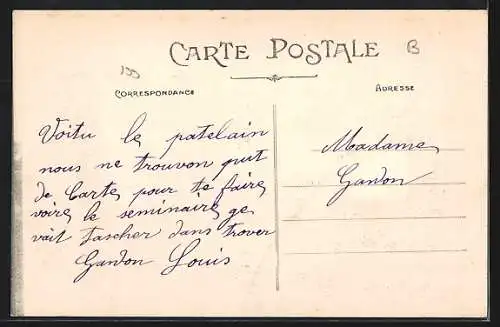 CARTE POSTALE
B
155
CORRESPONDANCE
ADRESSE
Voitu le patelain
nous ne trouvon put
de Carte pour te faire
voire le seminaire ge
vait tascher dans trover
Gandon Louis
Madame
Gandon